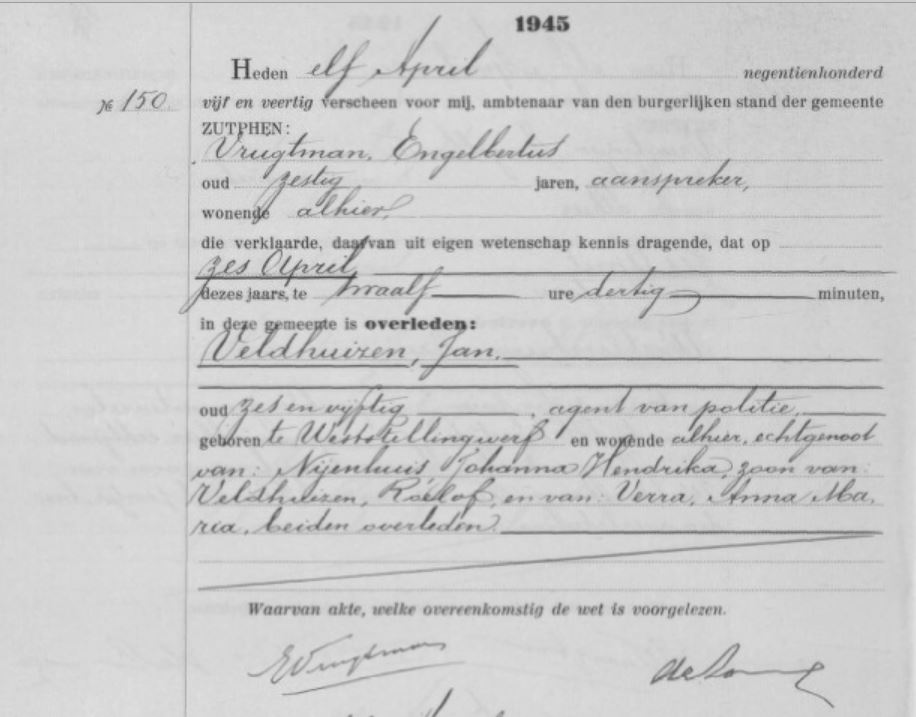 1945
Heden elf April negentienhonderd
№ 150. vijf en veertig verscheen voor mij, ambtenaar van den burgerlijken stand der gemeente
ZUTPHEN:
Vrugtman, Engelbertus
oud zestig jaren, aanspreker,
wonende alhier,
die verklaarde, daarvan uit eigen wetenschap kennis dragende, dat op
zes April
dezes jaars, te twaalf ure dertig minuten,
in deze gemeente is overleden:
Veldhuizen, Jan.
oud zes en vijftig, agent van politie,
geboren te Weststellingwerf en wonende alhier, echtgenoot
van: Nijenhuis Johanna Hendrika, zoon van:
Veldhuizen, Roelof, en van: Verra, Anna Ma,
ria, beiden overleden.
Waarvan akte, welke overeenkomstig de wet is voorgelezen.
EVrugtman